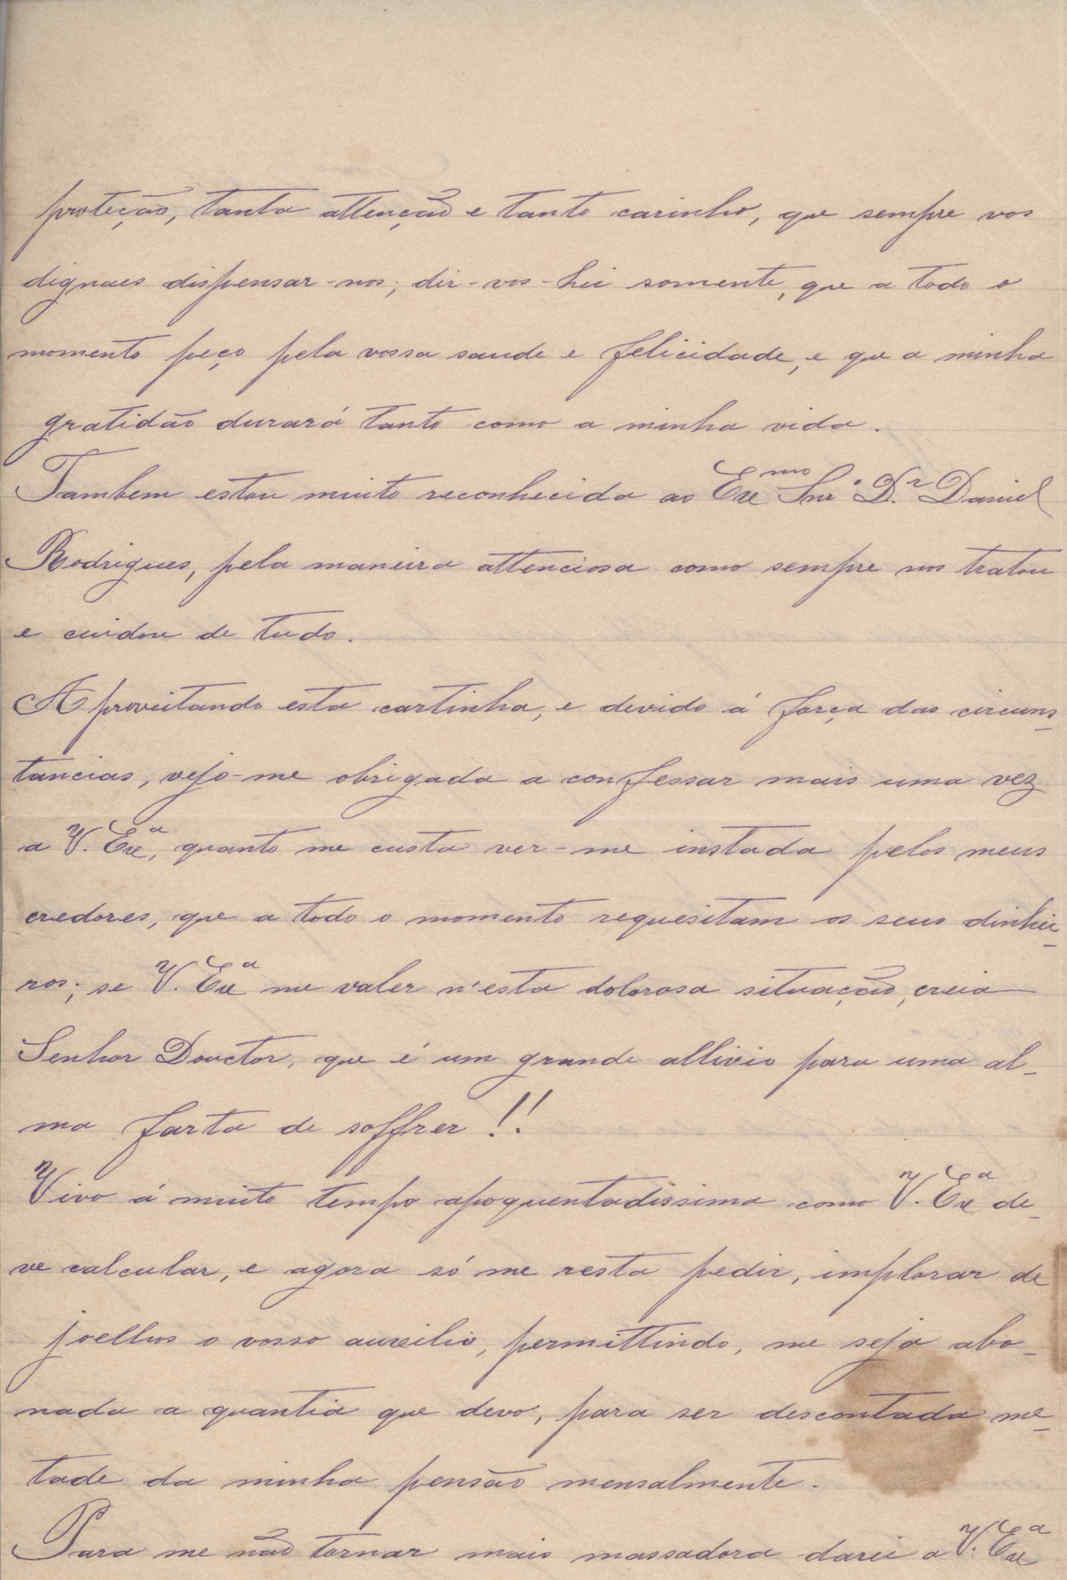 proteção, tanta attenção e tanto carinho, que sempre vos
dignaes dispensar-nos; dir-vos-hei somente, que a todo o
momento peço pela vossa saude e felicidade, e que a minha
gratidão durará tanto como a minha vida.
Tambem estou muito reconhecida ao Exmo Snr. D.r Daniel
Rodrigues, pela maneira attenciosa como sempre nos tratou
e cuidou de tudo.
Aproveitando esta cartinha, e devido á força das circuns-
tancias, vejo-me obrigada a confessar mais uma vez
a V. Exa, quanto me custa ver-me instada pelos meus
credores, que a todo o momento requesitam os seus dinhei-
ros; se V. Exa me valer n'esta dolorosa situação, creia
Senhor Douctor, que é um grande allivio para uma al-
ma farta de soffrer!!
Vivo á muito tempo apoquentadissima como V. Exa de-
ve calcular, e agora só me resta pedir, implorar de
joelhos o vosso auxilio, permittindo, me seja abo-
nada a quantia que devo, para ser descontada me-
tade da minha pensão mensalmente.
Para me não tornar mais massadora darei a V. Exa